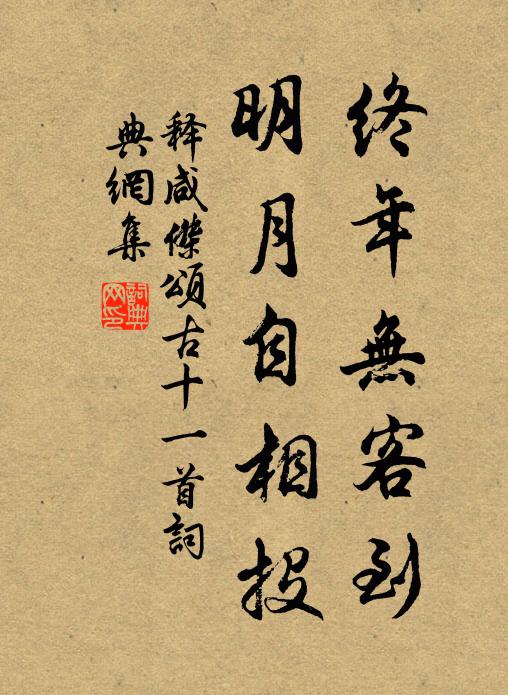 終年無客到
明月自相投
释咸傑頌古十一首詞
典網集
詞典網印